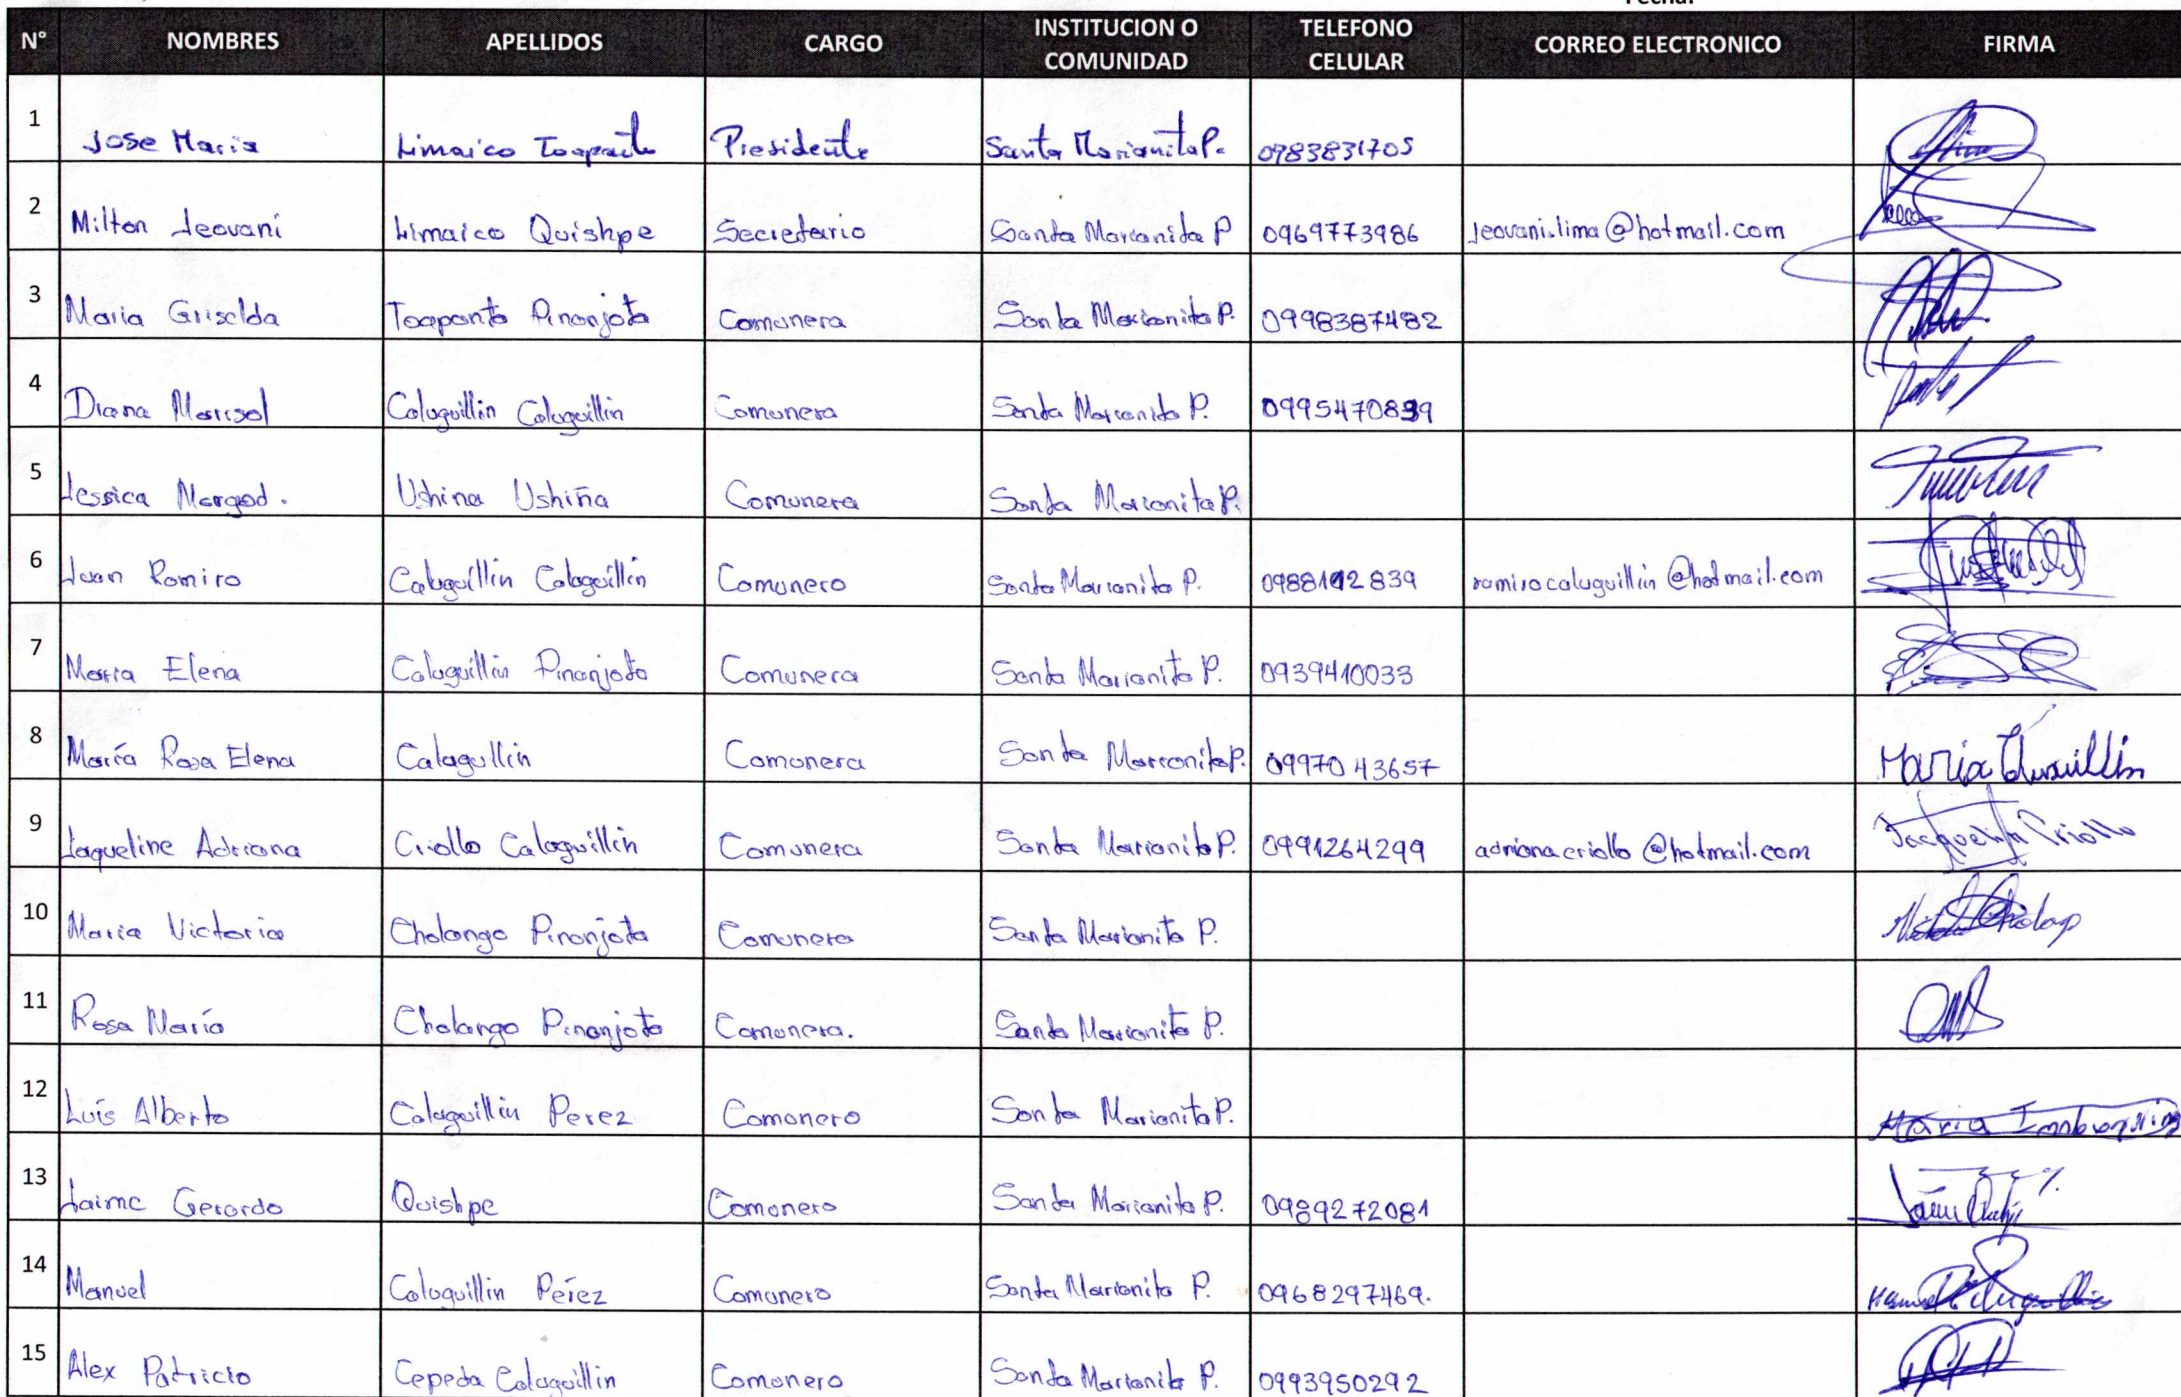 Fecha:
N° NOMBRES APELLIDOS CARGO INSTITUCION O COMUNIDAD TELEFONO CELULAR CORREO ELECTRONICO FIRMA
1 Jose Maria Limaico Toapanta Presidente Santa Marianita P. 0983831705
2 Milton Jeovani Limaico Quishpe Secretario Santa Marianita P 0969773986 jeovani.lima@hotmail.com
3 Maria Griselda Toapanta Pinanjota Comunera Santa Marianita P. 0998387482
4 Diana Marisol Calugullin Calugullin Comunera Santa Marianita P. 0995470839
5 Jessica Margod. Ushina Ushiña Comunera Santa Marianita P.
6 Juan Ramiro Caluguillin Calaguillin Comunero Santa Marianita P. 0988102839 ramirocaluguillin@hotmail.com
7 Maria Elena Caluguillin Pinanjota Comunera Santa Marianita P. 0939410033
8 María Rosa Elena Calagullin Comunera Santa Marianita P. 0997043657 María
9 Jaqueline Adriana Criollo Calaguillin Comunera Santa Marianita P. 0991264299 adrianacriollo@hotmail.com Jacquelyn Criollo
10 Maria Victoria Cholango Pinanjota Comunera Santa Marianita P.
11 Rosa María Cholango Pinanjota Comunera. Santa Marianita P.
12 Luís Alberto Calaguillin Perez Comunero Santa Marianita P. Maria
13 Jaime Gerardo Quishpe Comunero Santa Marianita P. 0989272081
14 Manuel Caluguillin Pérez Comunero Santa Marianita P. 0968297469.
15 Alex Patricio Cepeda Calaguillin Comunero Santa Marianita P. 0993950292